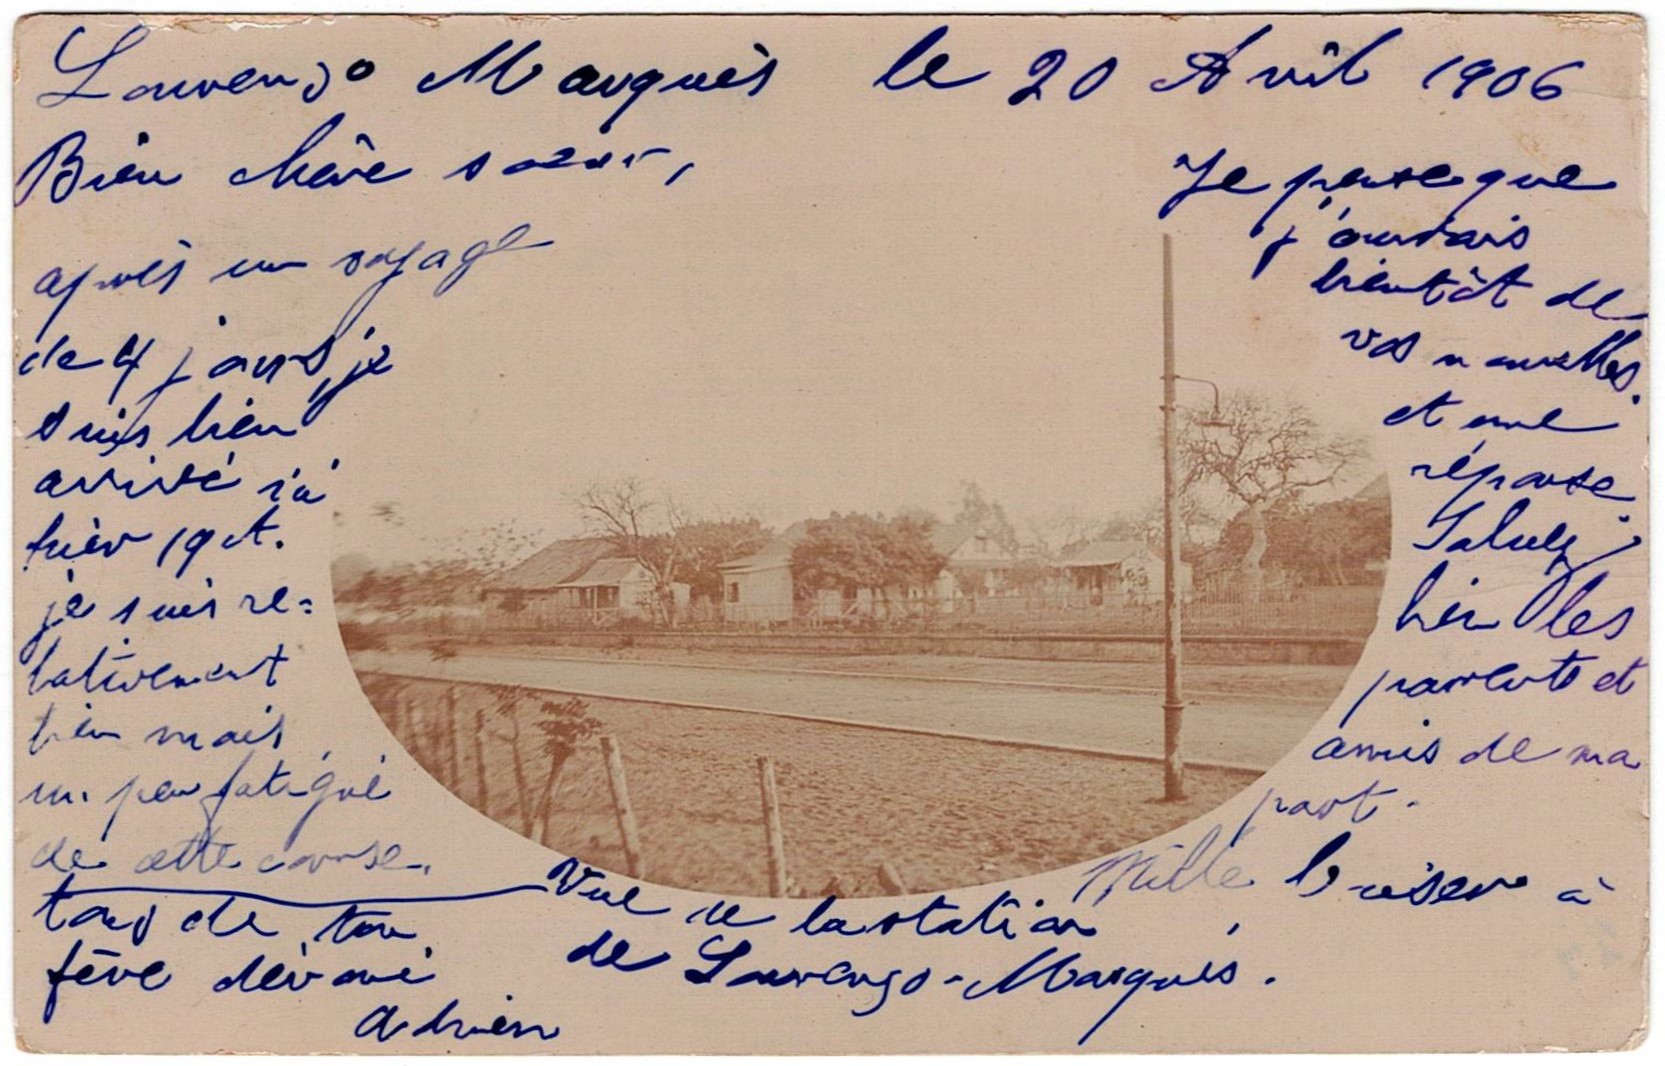 Lourenzo Marquès le 20 Avril 1906
Bien chère sœur,
après un voyage
de 4 jours, je
suis bien
arrivé ici
hier 19 ct.
je suis re=
lativement
bien mais
un peu fatigué
de cette course.
Je pense que
j'aurais
bientôt de
vos nouvelles.
et une
réponse.
Saluez
bien les
parents et
amis de ma
part.
Mille baiser à
tous de ton
frère dévoué
Adrien
Vue de la station
de Lourenzo-Marquès.